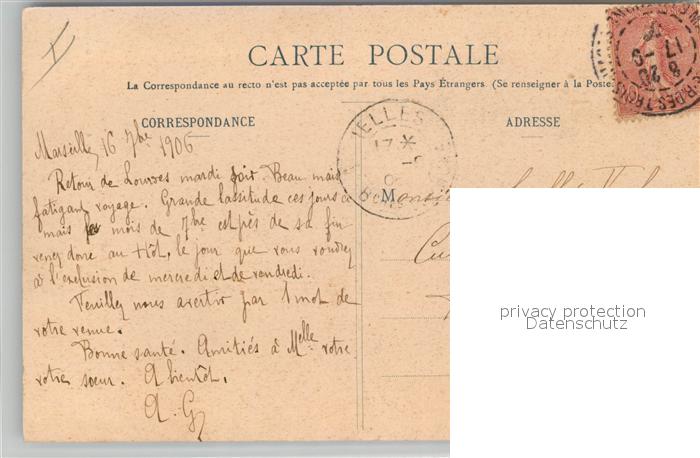 CARTE POSTALE
La Correspondance au recto n'est pas acceptée par tous les Pays Étrangers. (Se renseigner à la Poste
CORRESPONDANCE
ADRESSE
Marseille, 16 7bre 1906
Retour de Lourdes mardi soir. Beau mais
fatigant voyage. Grande lassitude ces jours ci
mais le mois de 7bre est près de sa fin
venez donc au + tôt, le jour que vous voudrez
à l'exclusion de mercredi et de vendredi.
Veuillez nous avertir par 1 mot de
votre venue.
Bonne santé. Amitiés à Melle votre
votre soeur. A bientôt.
A. G.
ELLES
17
Monsieur
privacy protection
Datenschutz